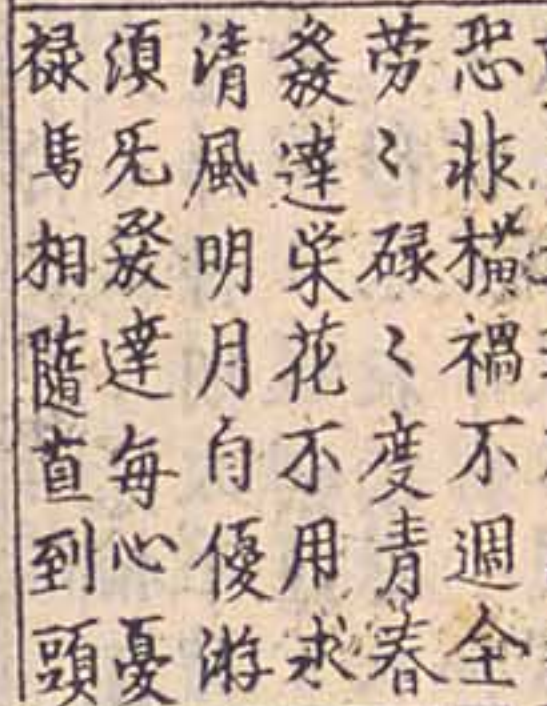 恐非横禍不週全
劳〻碌〻度青春
發達栄花不用求
清風明月自優游
須旡發達每心憂
禄馬相隨直到頭